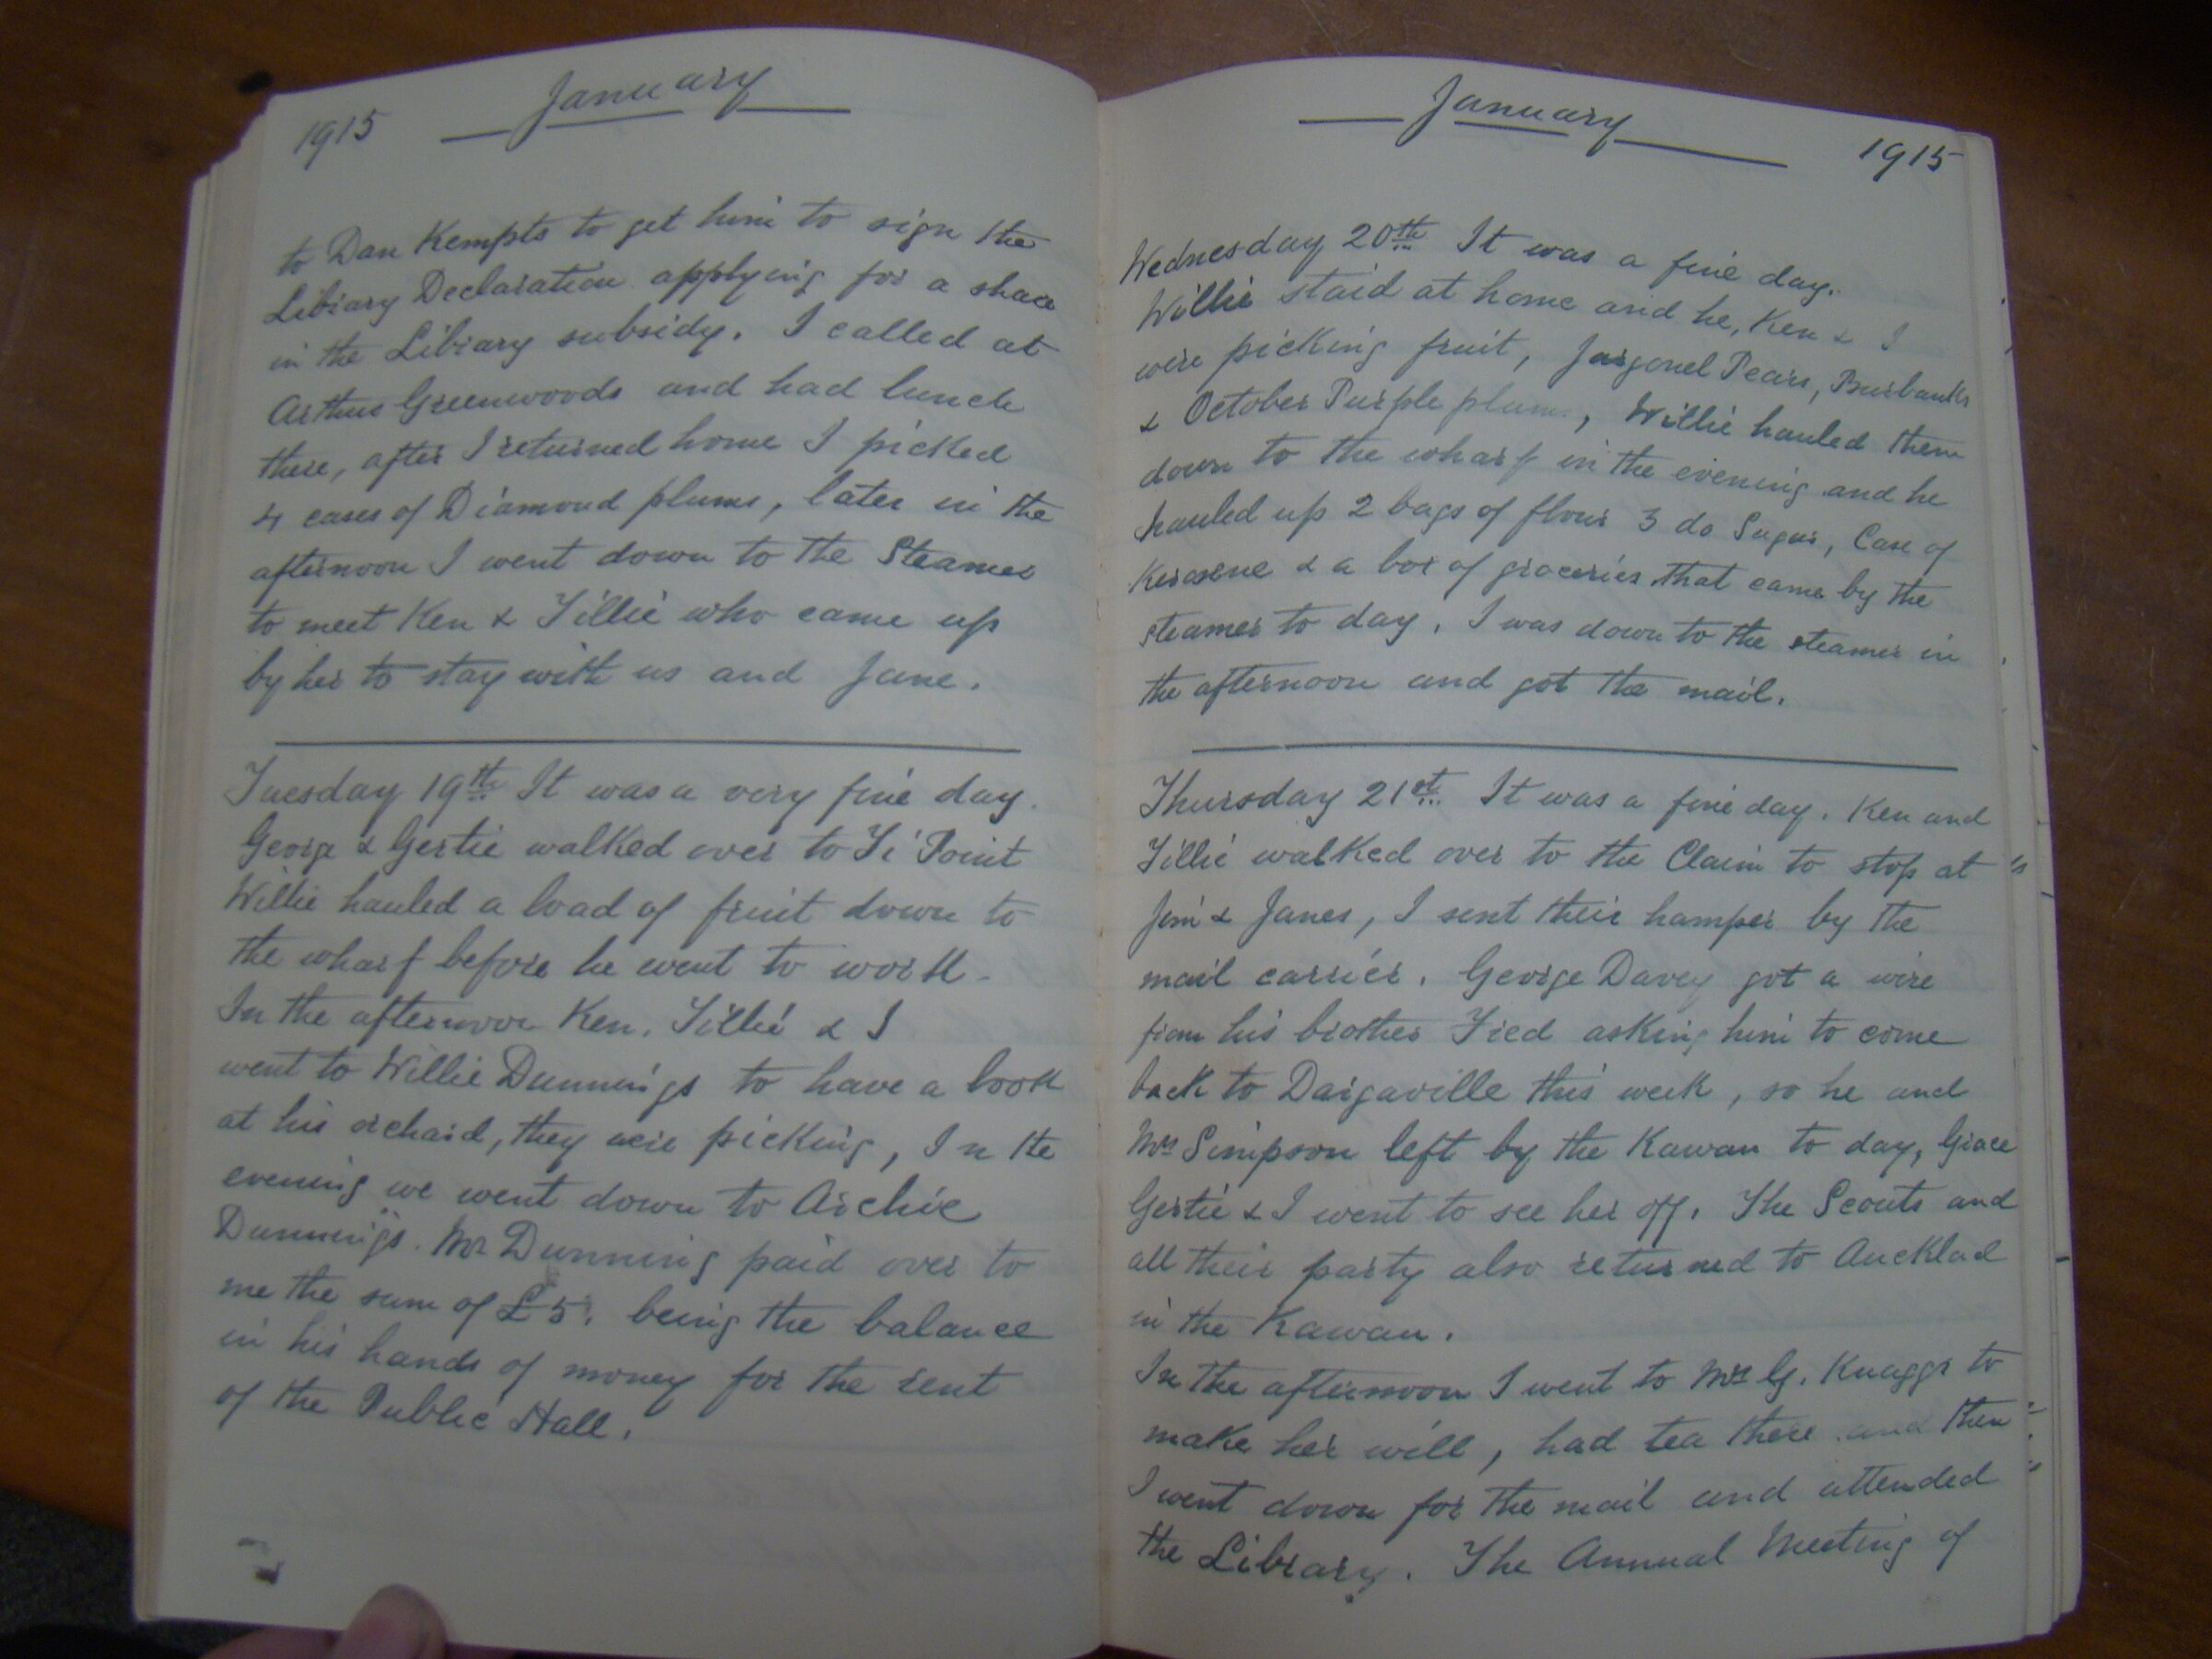 1915 January
to Dan Kempts to get him to sign the
Library Declaration applying for a share
in the Library subsidy. I called at
Arthur Greenwoods and had lunch
there, after I returned home I picked
4 cases of Diamond plums, later in the
afternoon I went down to the Steamer
to meet Ken & Tillie who came up
by her to stay with us and Jane.
Tuesday 19th It was a very fine day.
George & Gertie walked over to Ti Point
Willie hauled a load of fruit down to
the wharf before he went to work.
In the afternoon Ken, Tillie & I
went to Willie Dunnings to have a look
at his orchard, they were picking, In the
evening we went down to Archie
Dunnings. Mr Dunning paid over to
me the sum of £5. being the balance
in his hands of money for the rent
of the Public Hall.
January 1915
Wednesday 20th It was a fine day.
Willie staid at home and he, Ken & I
were picking fruit, Jargonel Pears, Burbanks
& October Purple plums, Willie hauled them
down to the wharf in the evening and he
hauled up 2 bags of flour 3 do Sugar, Case of
Kerosene & a box of groceries that came by the
steamer to day. I was down to the steamer in
the afternoon and got the mail.
Thursday 21st It was a fine day. Ken and
Tillie walked over to the Claim to stop at
Jim & Janes, I sent their hamper by the
mail carrier. George Davey got a wire
from his brother Fred asking him to come
back to Dargaville this week, so he and
Mrs Simpson left by the Kawau to day, Grace
Gertie & I went to see her off. The Scouts and
all their party also returned to Aucklad
in the Kawau.
In the afternoon I went to Mrs G. Knaggs to
make her will, had tea there and then
I went down for the mail and attended
the Library. The Annual Meeting of